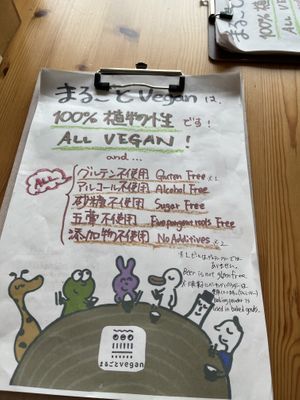 まるごとVeganは、
100%植物性です!
ALL VEGAN!
and...
グルテン不使用 Gluten Free ※1
アルコール不使用 Alcohol Free
砂糖不使用 Sugar Free
五葷不使用 Five pungent roots Free
添加物不使用 No Additives ※2
ありません。
Beer is not gluten free.
baking powder is
used in baked goods.
まるごとvegan